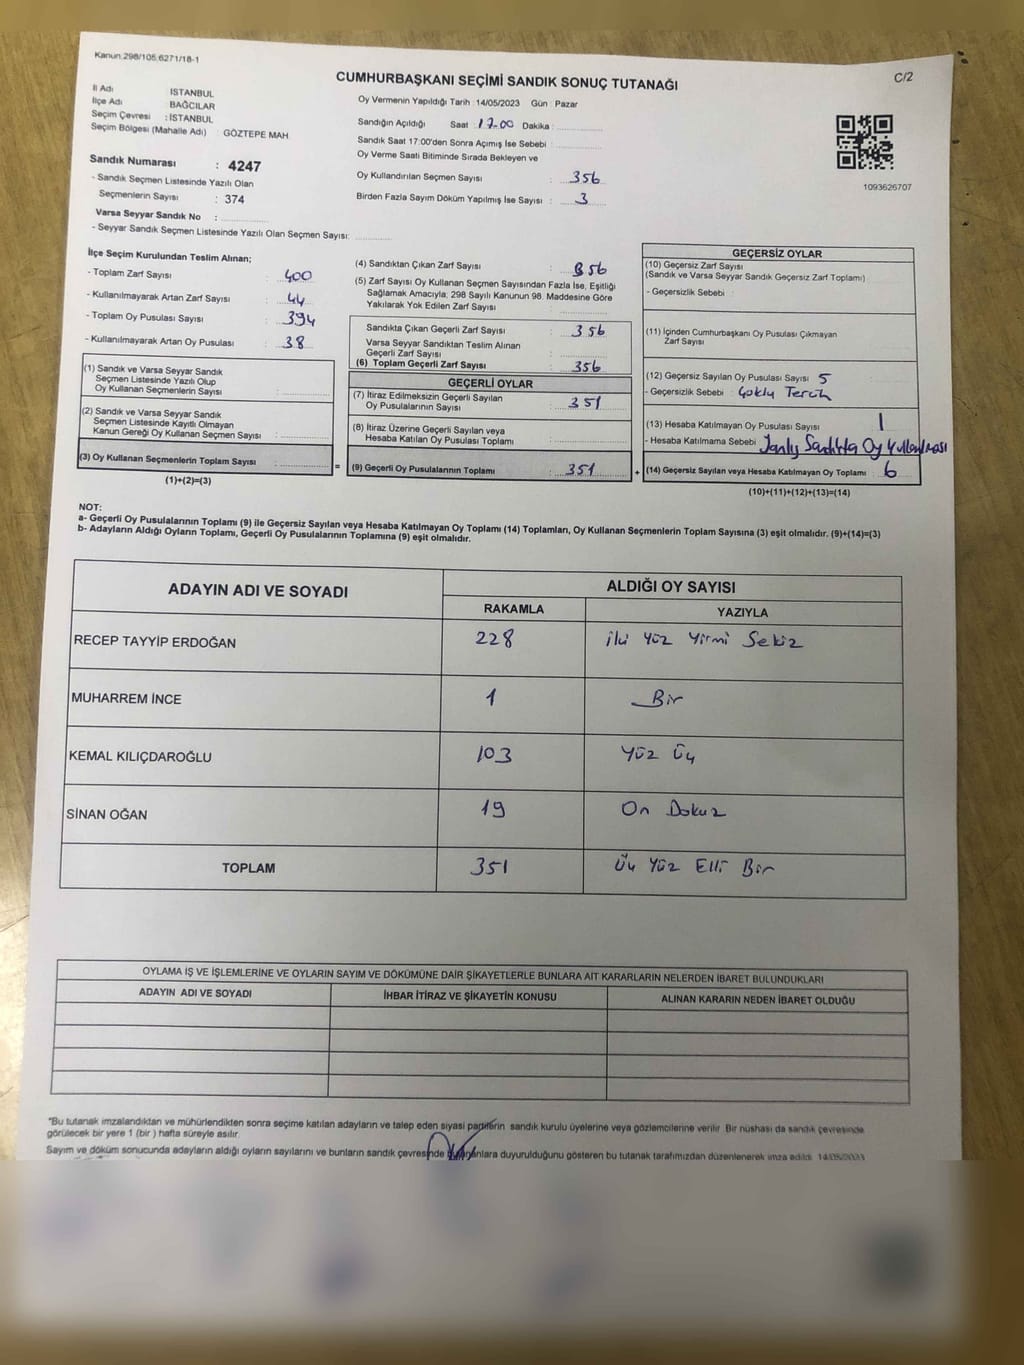 Kanun.298/105,6271/18-1
C/2
CUMHURBAŞKANI SEÇİMİ SANDIK SONUÇ TUTANAĞI
İl Adı İSTANBUL
İlçe Adı BAĞCILAR
Seçim Çevresi : İSTANBUL
Seçim Bölgesi (Mahalle Adı) : GÖZTEPE MAH
Sandık Numarası : 4247
- Sandık Seçmen Listesinde Yazılı Olan
Seçmenlerin Sayısı : 374
Varsa Seyyar Sandık No :
- Seyyar Sandık Seçmen Listesinde Yazılı Olan Seçmen Sayısı:
Oy Vermenin Yapıldığı Tarih : 14/05/2023 Gün : Pazar
Sandığın Açıldığı Saat : 17.00 Dakika :
Sandık Saat 17:00'den Sonra Açımış İse Sebebi :
Oy Verme Saati Bitiminde Sırada Bekleyen ve
Oy Kullandırılan Seçmen Sayısı : 356
Birden Fazla Sayım Döküm Yapılmış İse Sayısı : 3
1093626707
İlçe Seçim Kurulundan Teslim Alınan;
- Toplam Zarf Sayısı : 400
- Kullanılmayarak Artan Zarf Sayısı : 44
- Toplam Oy Pusulası Sayısı : 394
- Kullanılmayarak Artan Oy Pusulası : 38
(1) Sandık ve Varsa Seyyar Sandık
Seçmen Listesinde Yazılı Olup
Oy Kullanan Seçmenlerin Sayısı :
(2) Sandık ve Varsa Seyyar Sandık
Seçmen Listesinde Kayıtlı Olmayan
Kanun Gereği Oy Kullanan Seçmen Sayısı :
(3) Oy Kullanan Seçmenlerin Toplam Sayısı :
(1)+(2)=(3)
(4) Sandıktan Çıkan Zarf Sayısı : 356
(5) Zarf Sayısı Oy Kullanan Seçmen Sayısından Fazla İse, Eşitliği
Sağlamak Amacıyla; 298 Sayılı Kanunun 98. Maddesine Göre
Yakılarak Yok Edilen Zarf Sayısı :
Sandıkta Çıkan Geçerli Zarf Sayısı : 356
Varsa Seyyar Sandıktan Teslim Alınan
Geçerli Zarf Sayısı :
(6) Toplam Geçerli Zarf Sayısı : 356
GEÇERLİ OYLAR
(7) İtiraz Edilmeksizin Geçerli Sayılan
Oy Pusulalarının Sayısı : 351
(8) İtiraz Üzerine Geçerli Sayılan veya
Hesaba Katılan Oy Pusulaları Toplamı :
= (9) Geçerli Oy Pusulalarının Toplamı : 351 +
GEÇERSİZ OYLAR
(10) Geçersiz Zarf Sayısı
(Sandık ve Varsa Seyyar Sandık Geçersiz Zarf Toplamı)
- Geçersizlik Sebebi :
(11) İçinden Cumhurbaşkanı Oy Pusulası Çıkmayan
Zarf Sayısı
(12) Geçersiz Sayılan Oy Pusulası Sayısı 5
- Geçersizlik Sebebi : Çoklu Tercih
(13) Hesaba Katılmayan Oy Pusulası Sayısı 1
- Hesaba Katılmama Sebebi Yanlış Sandıkta Oy Kullanılması
(14) Geçersiz Sayılan veya Hesaba Katılmayan Oy Toplamı : 6
(10)+(11)+(12)+(13)=(14)
NOT:
a- Geçerli Oy Pusulalarının Toplamı (9) ile Geçersiz Sayılan veya Hesaba Katılmayan Oy Toplamı (14) Toplamları, Oy Kullanan Seçmenlerin Toplam Sayısına (3) eşit olmalıdır. (9)+(14)=(3)
b- Adayların Aldığı Oyların Toplamı, Geçerli Oy Pusulalarının Toplamına (9) eşit olmalıdır.
ADAYIN ADI VE SOYADI ALDIĞI OY SAYISI
RAKAMLA YAZIYLA
RECEP TAYYİP ERDOĞAN 228 iki Yüz Yirmi Sekiz
MUHARREM İNCE 1 Bir
KEMAL KILIÇDAROĞLU 103 Yüz Üç
SİNAN OĞAN 19 On Dokuz
TOPLAM 351 Üç Yüz Elli Bir
OYLAMA İŞ VE İŞLEMLERİNE VE OYLARIN SAYIM VE DÖKÜMÜNE DAİR ŞİKAYETLERLE BUNLARA AİT KARARLARIN NELERDEN İBARET BULUNDUKLARI
ADAYIN ADI VE SOYADI İHBAR İTİRAZ VE ŞİKAYETİN KONUSU ALINAN KARARIN NEDEN İBARET OLDUĞU
*Bu tutanak imzalandıktan ve mühürlendikten sonra seçime katılan adayların ve talep eden siyasi partilerin sandık kurulu üyelerine veya gözlemcilerine verilir. Bir nüshası da sandık çevresinde
görülecek bir yere 1 (bir ) hafta süreyle asılır.
Sayım ve döküm sonucunda adayların aldığı oyların sayılarını ve bunların sandık çevresinde bulunanlara duyurulduğunu gösteren bu tutanak tarafımızdan düzenlenerek imza edildi. 14/05/2023